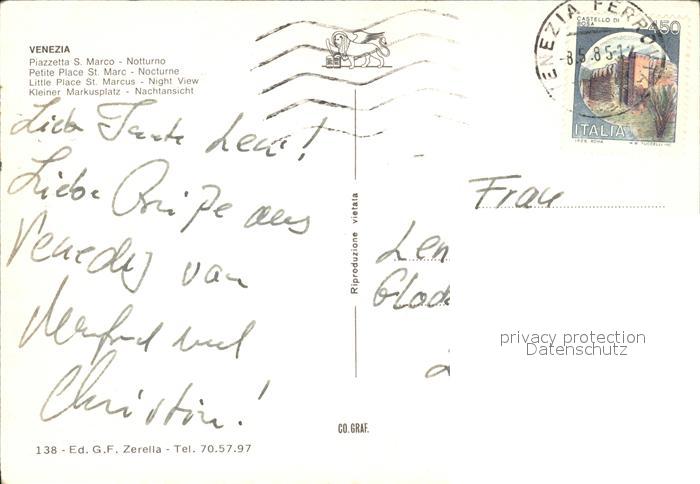 VENEZIA
Piazzetta S. Marco - Notturno
Petite Place St. Marc - Nocturne
Little Place St. Marcus - Night View
Kleiner Markusplatz - Nachtansicht
Liebe Tante Leni!
Liebe Grüße aus
Venedig von
Manfred und
Christin!
138 - Ed. G.F. Zerella - Tel. 70.57.97
CO. GRAF.
Riproduzione vietata
VENEZIA FERRO
8.5.85-14
CASTELLO DI
ROSA
450
ITALIA
I.P.Z.S. ROMA
Frau
Len
Glad
privacy protection
Datenschutz